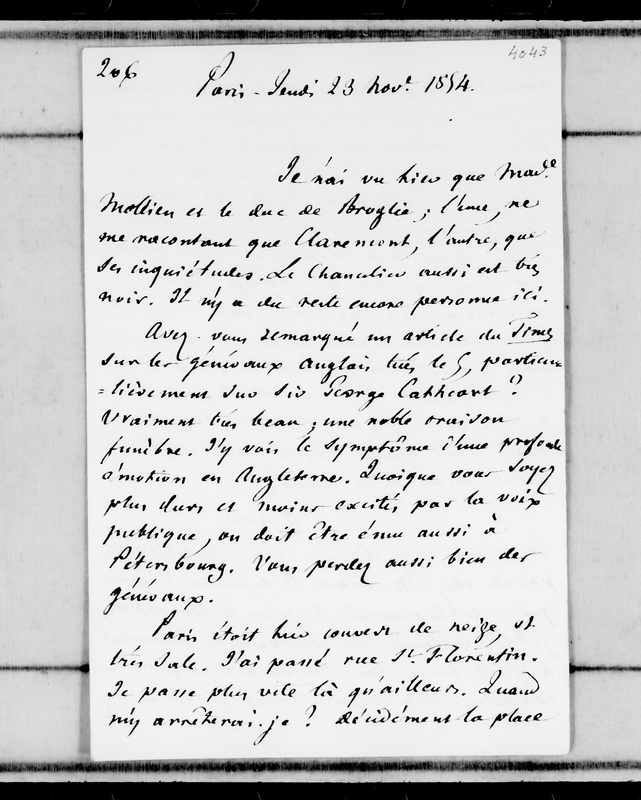 206
4043
Paris - Jeudi 23 Nov.e 1854.
Je n'ai vu hier que Mad.e
Mollien et le duc de Broglie ; l'une, ne
me racontant que Claremont, l'autre, que
ses inquiétudes. Le Chancelier aussi est très
noir. Il n'y a du reste encore personne ici.
Avez-vous remarqué un article du Times
sur les généraux anglais tués le 5, particu
=lièrement sur Sir George Cathcart ?
Vraiment très beau ; une noble oraison
funèbre. J'y vois le symptôme d'une profonde
émotion en Angleterre. Quoique vous soyez
plus durs et moins excités par la voix
publique, on doit être ému aussi à
Pétersbourg. Vous perdez aussi bien des
généraux.
Paris étoit hier couvert de neige, et
très sale. J'ai passé rue St. Florentin.
Je passe plus vite là qu'ailleurs. Quand
m'y arrêterai-je ? Décidément la place